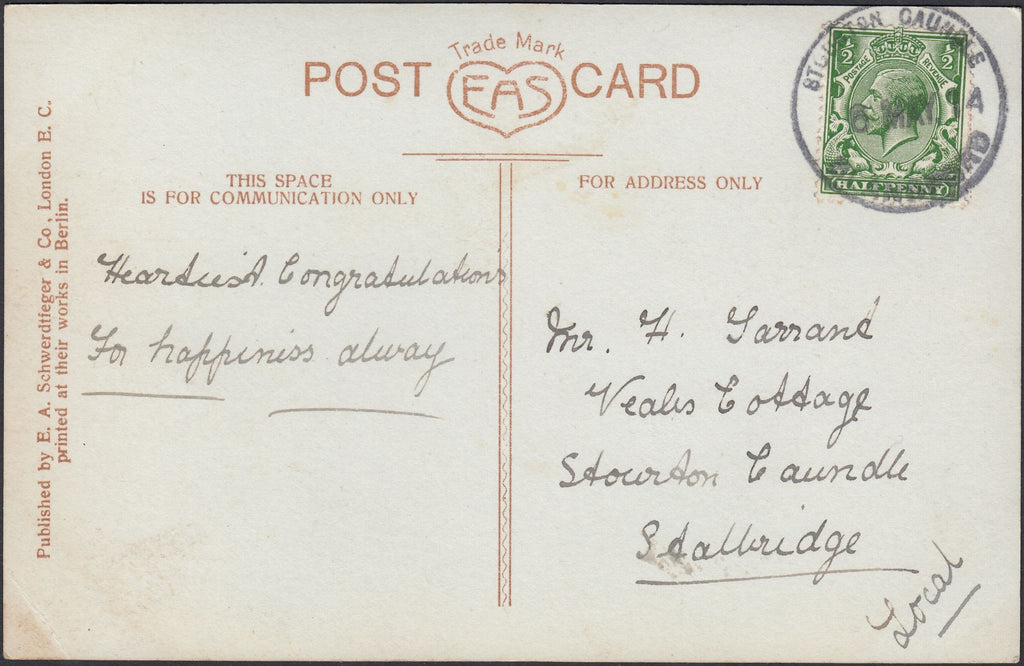 Trade Mark
POST EAS CARD
THIS SPACE
IS FOR COMMUNICATION ONLY
FOR ADDRESS ONLY
Published by E. A. Schwerdtfeger & Co., London E. C.
printed at their works in Berlin.
Heartiest Congratulations
For happiness alway
Mr. H. Tarrant
Veals Cottage
Stourton Caundle
Stalbridge
Local
CAUNDLE
6 MY 14
½ ½
POSTAGE REVENUE
HALFPENNY